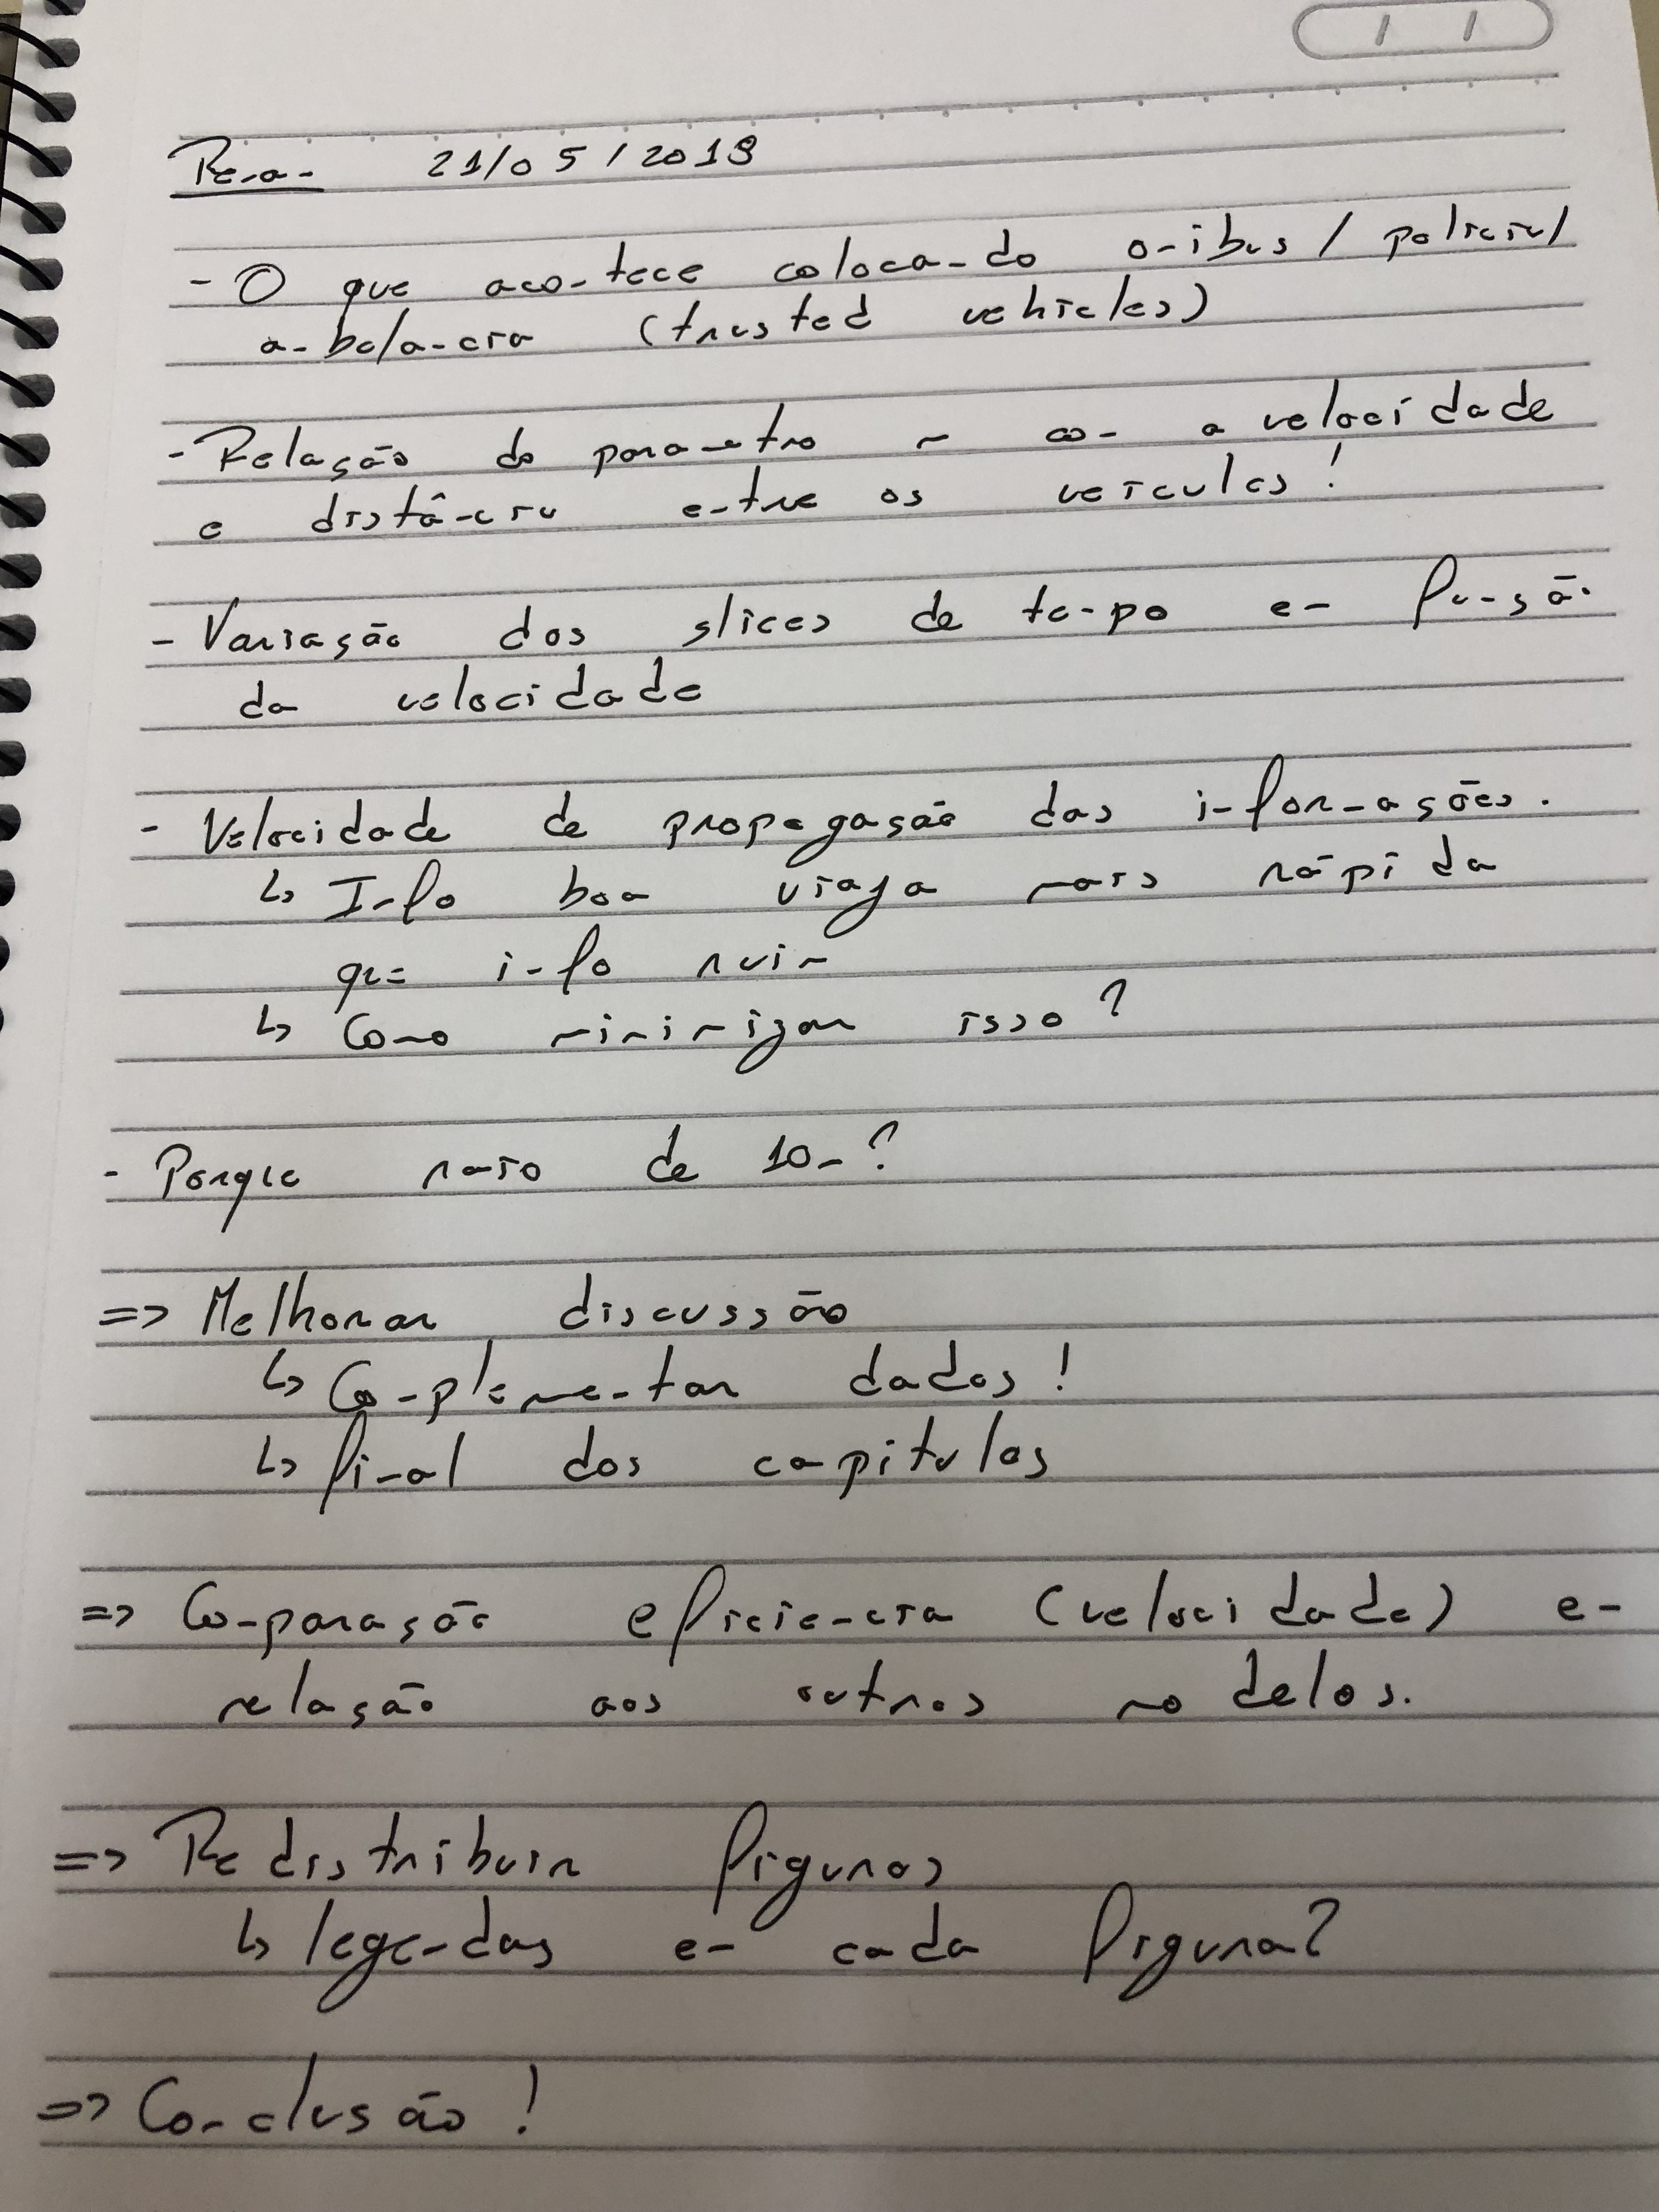 Renan 21/05/2019
- O que acontece colocando onibus / policial
ambulancia (trusted vehicles)
- Relação do parametro m com a velocidade
e distância entre os veiculos!
- Variação dos slices de tempo em função
da velocidade
- Velocidade de propagação das informações.
↳ Info boa viaja mais rápida
que info ruim
↳ Como minimizar isso?
- Porque raio de 10m?
=> Melhorar discussão
↳ Complementar dados!
↳ final dos capitulos
=> Comparação eficiencia (velocidade) em
relação aos outros modelos.
=> Redistribuir figuras
↳ legendas em cada figura?
=> Conclusão!